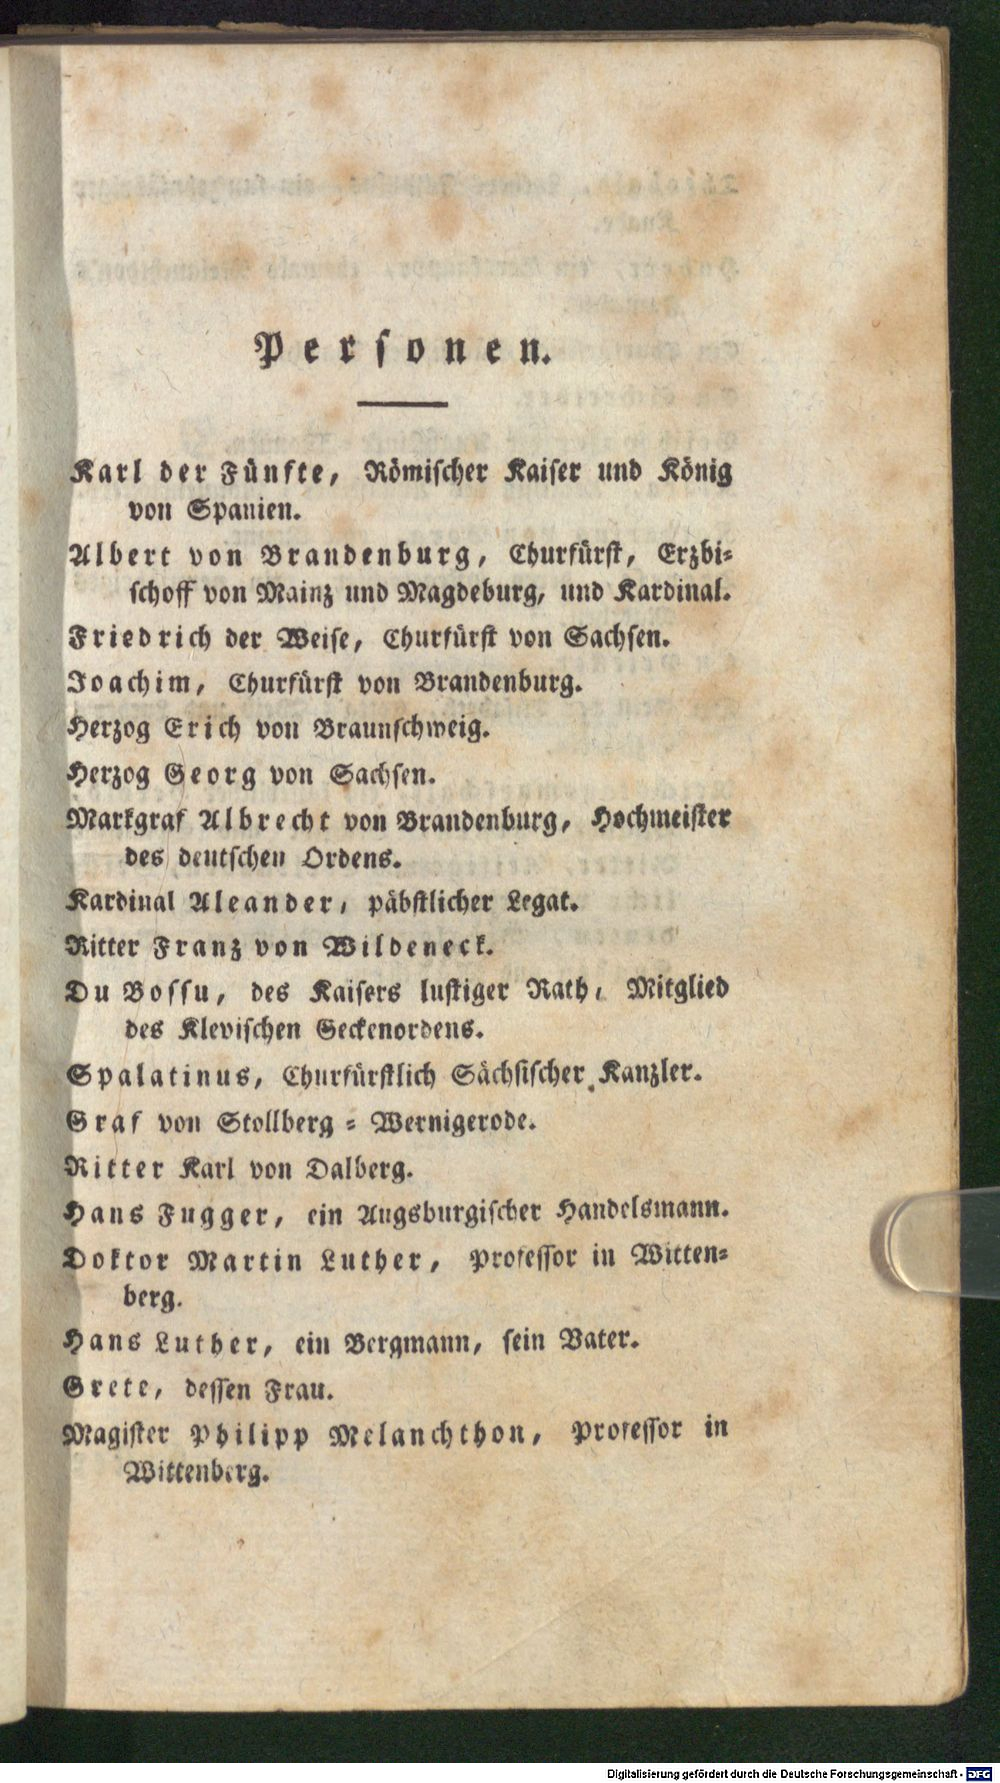 Personen.
Karl der Fünfte, Römischer Kaiser und König
von Spanien.
Albert von Brandenburg, Churfürst, Erzbi-
schoff von Mainz und Magdeburg, und Kardinal.
Friedrich der Weise, Churfürst von Sachsen.
Joachim, Churfürst von Brandenburg.
Herzog Erich von Braunschweig.
Herzog Georg von Sachsen.
Markgraf Albrecht von Brandenburg, Hochmeister
des deutschen Ordens.
Kardinal Aleander, päbstlicher Legat.
Ritter Franz von Wildeneck.
Du Bossu, des Kaisers lustiger Rath, Mitglied
des Klevischen Geckenordens.
Spalatinus, Churfürstlich Sächsischer Kanzler.
Graf von Stollberg-Wernigerode.
Ritter Karl von Dalberg.
Hans Fugger, ein Augsburgischer Handelsmann.
Doktor Martin Luther, Professor in Witten-
berg.
Hans Luther, ein Bergmann, sein Vater.
Grete, dessen Frau.
Magister Philipp Melanchthon, Professor in
Wittenberg.
Digitalisierung gefördert durch die Deutsche Forschungsgemeinschaft - DFG